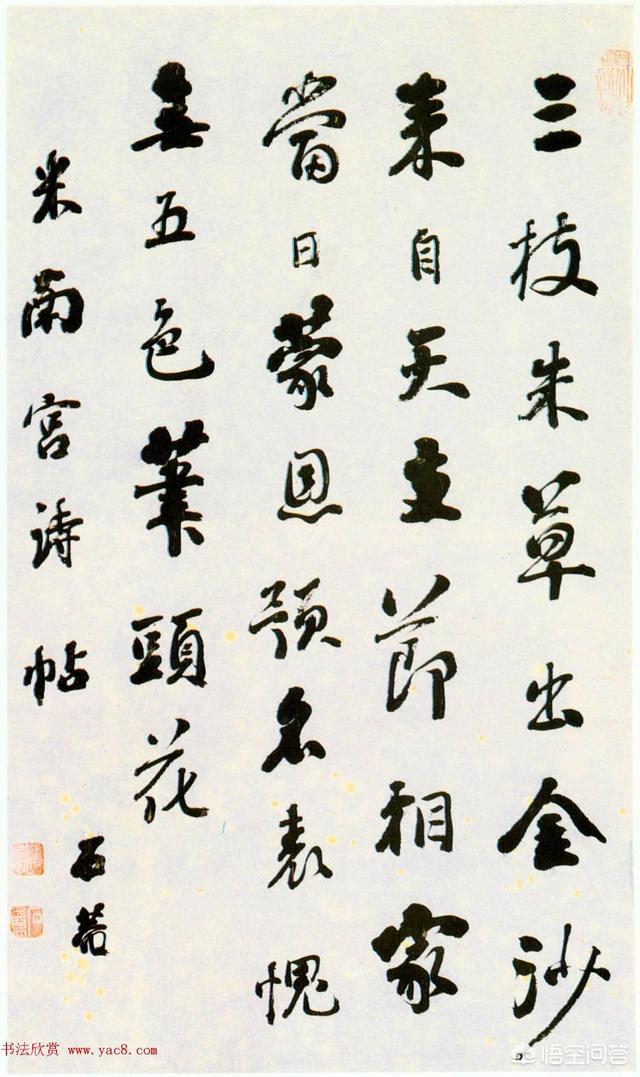 三枝朱草出金沙
来自天支節相家
當日蒙恩預名表愧
無五色筆頭花
米南宮詩帖
石菴
书法欣赏 www.yac8.com
悟空问答